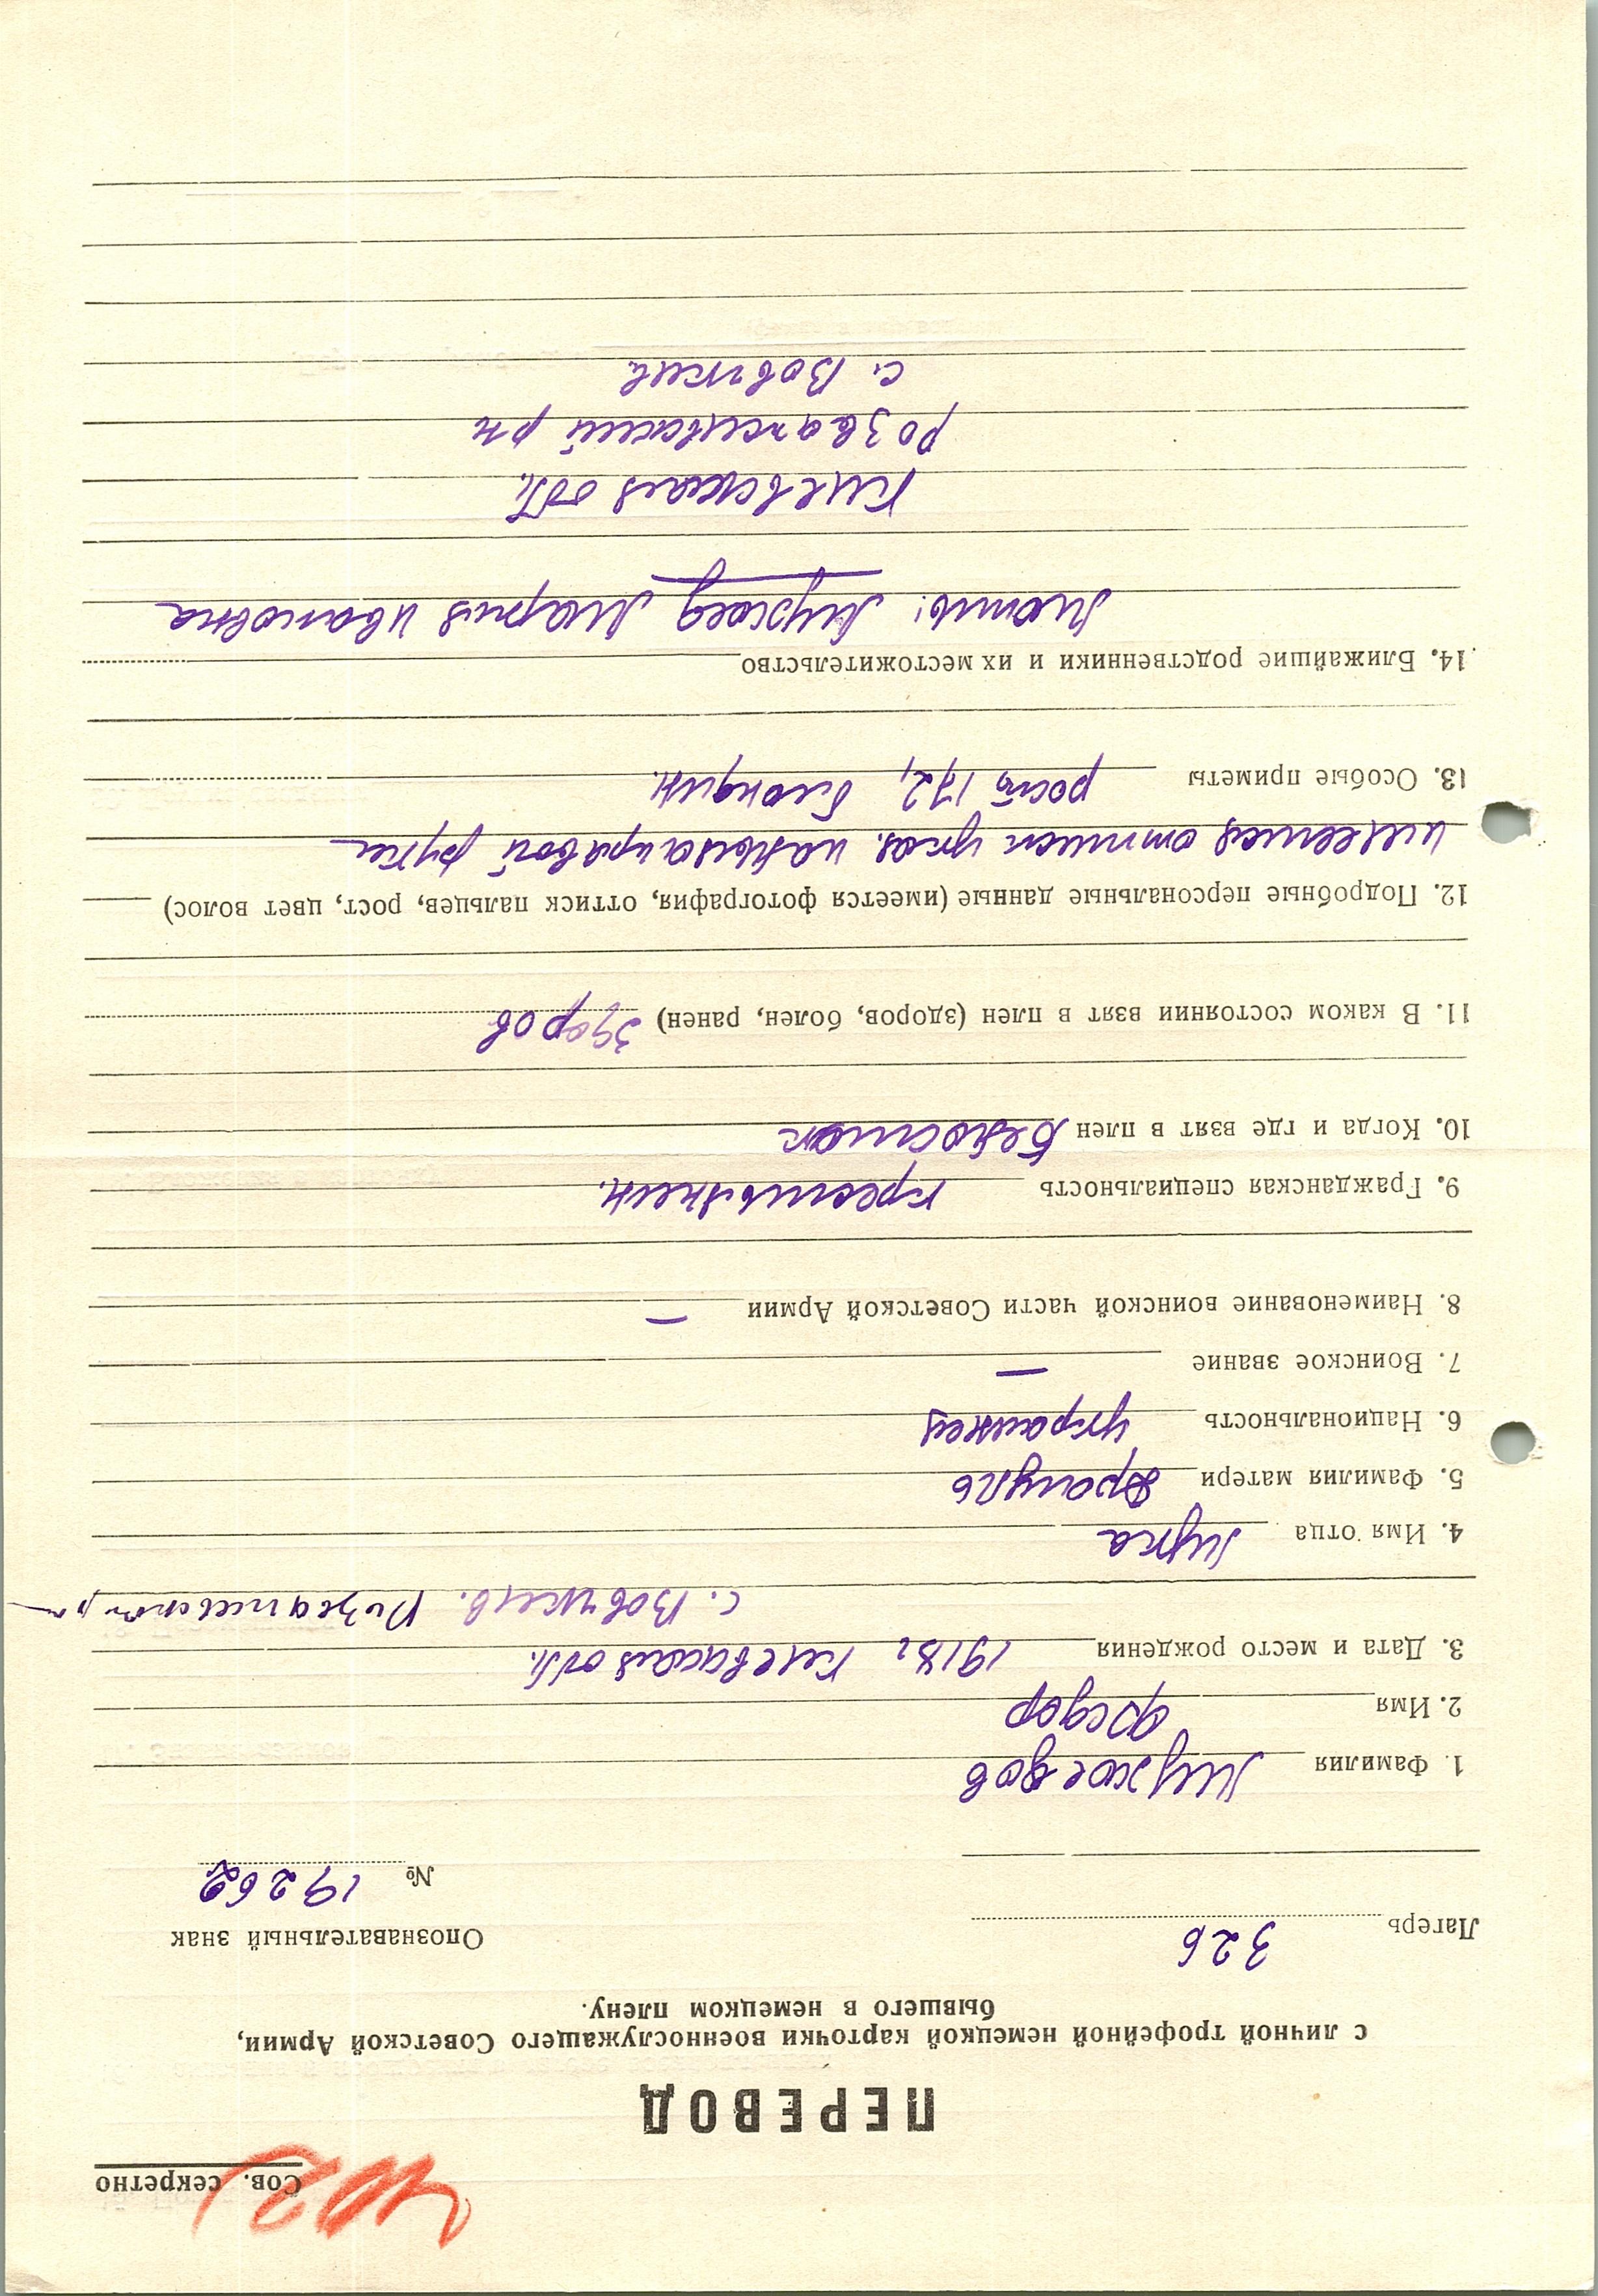 Сов. секретно
ПЕРЕВОД
с личной трофейной немецкой карточки военнослужащего Советской Армии,
бывшего в немецком плену.
Лагерь 326
Опознавательный знак
№ 19262
1. Фамилия Мухоедов
2. Имя Федор
3. Дата и место рождения 1918г Киевская обл.
с. Вовчков.
4. Имя отца Лука
5. Фамилия матери
6. Национальность украинец
7. Воинское звание —
8. Наименование воинской части Советской Армии —
9. Гражданская специальность крестьянин.
10. Когда и где взят в плен Белосток
11. В каком состоянии взят в плен (здоров, болен, ранен) здоров
12. Подробные персональные данные (имеется фотография, оттиск пальцев, рост, цвет волос)
имеется оттиск указ. пальца правой руки
13. Особые приметы рост 172, блондин.
14. Ближайшие родственники и их местожительство
Мать: Мухоед Мария Ивановна
Киевская обл.
Розважевский рн